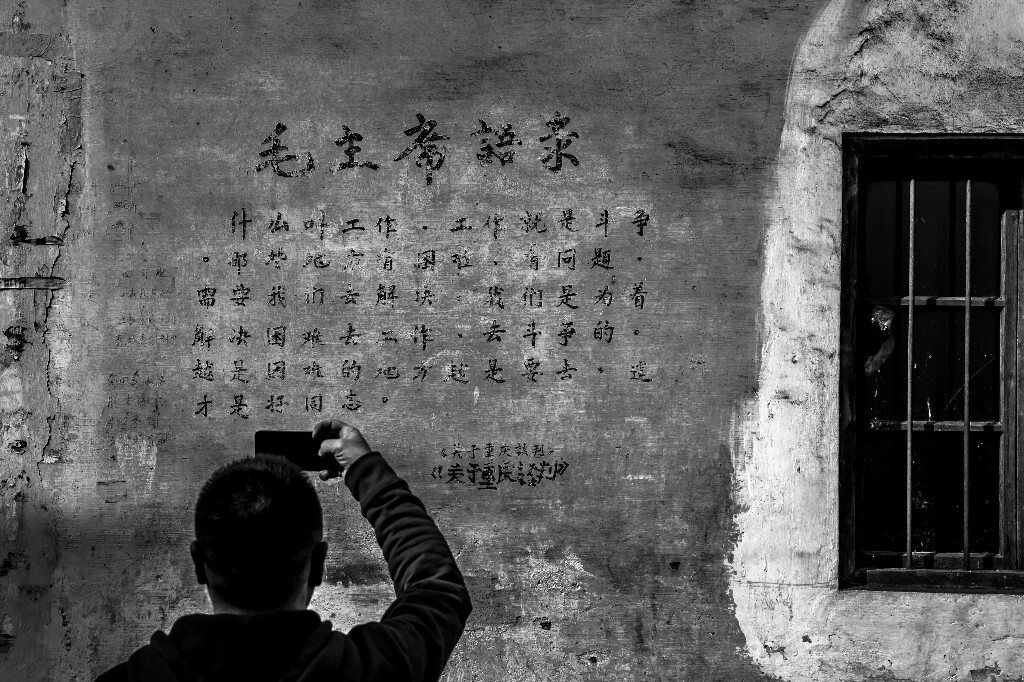 毛主席語录
什么叫工作，工作就是斗争
。那些地方有困难、有问题，
需要我们去解决。我们是为着
解决困难去工作、去斗争的。
越是困难的地方越是要去，这
才是好同志。
《关于重庆谈判》
《关于重庆谈判》